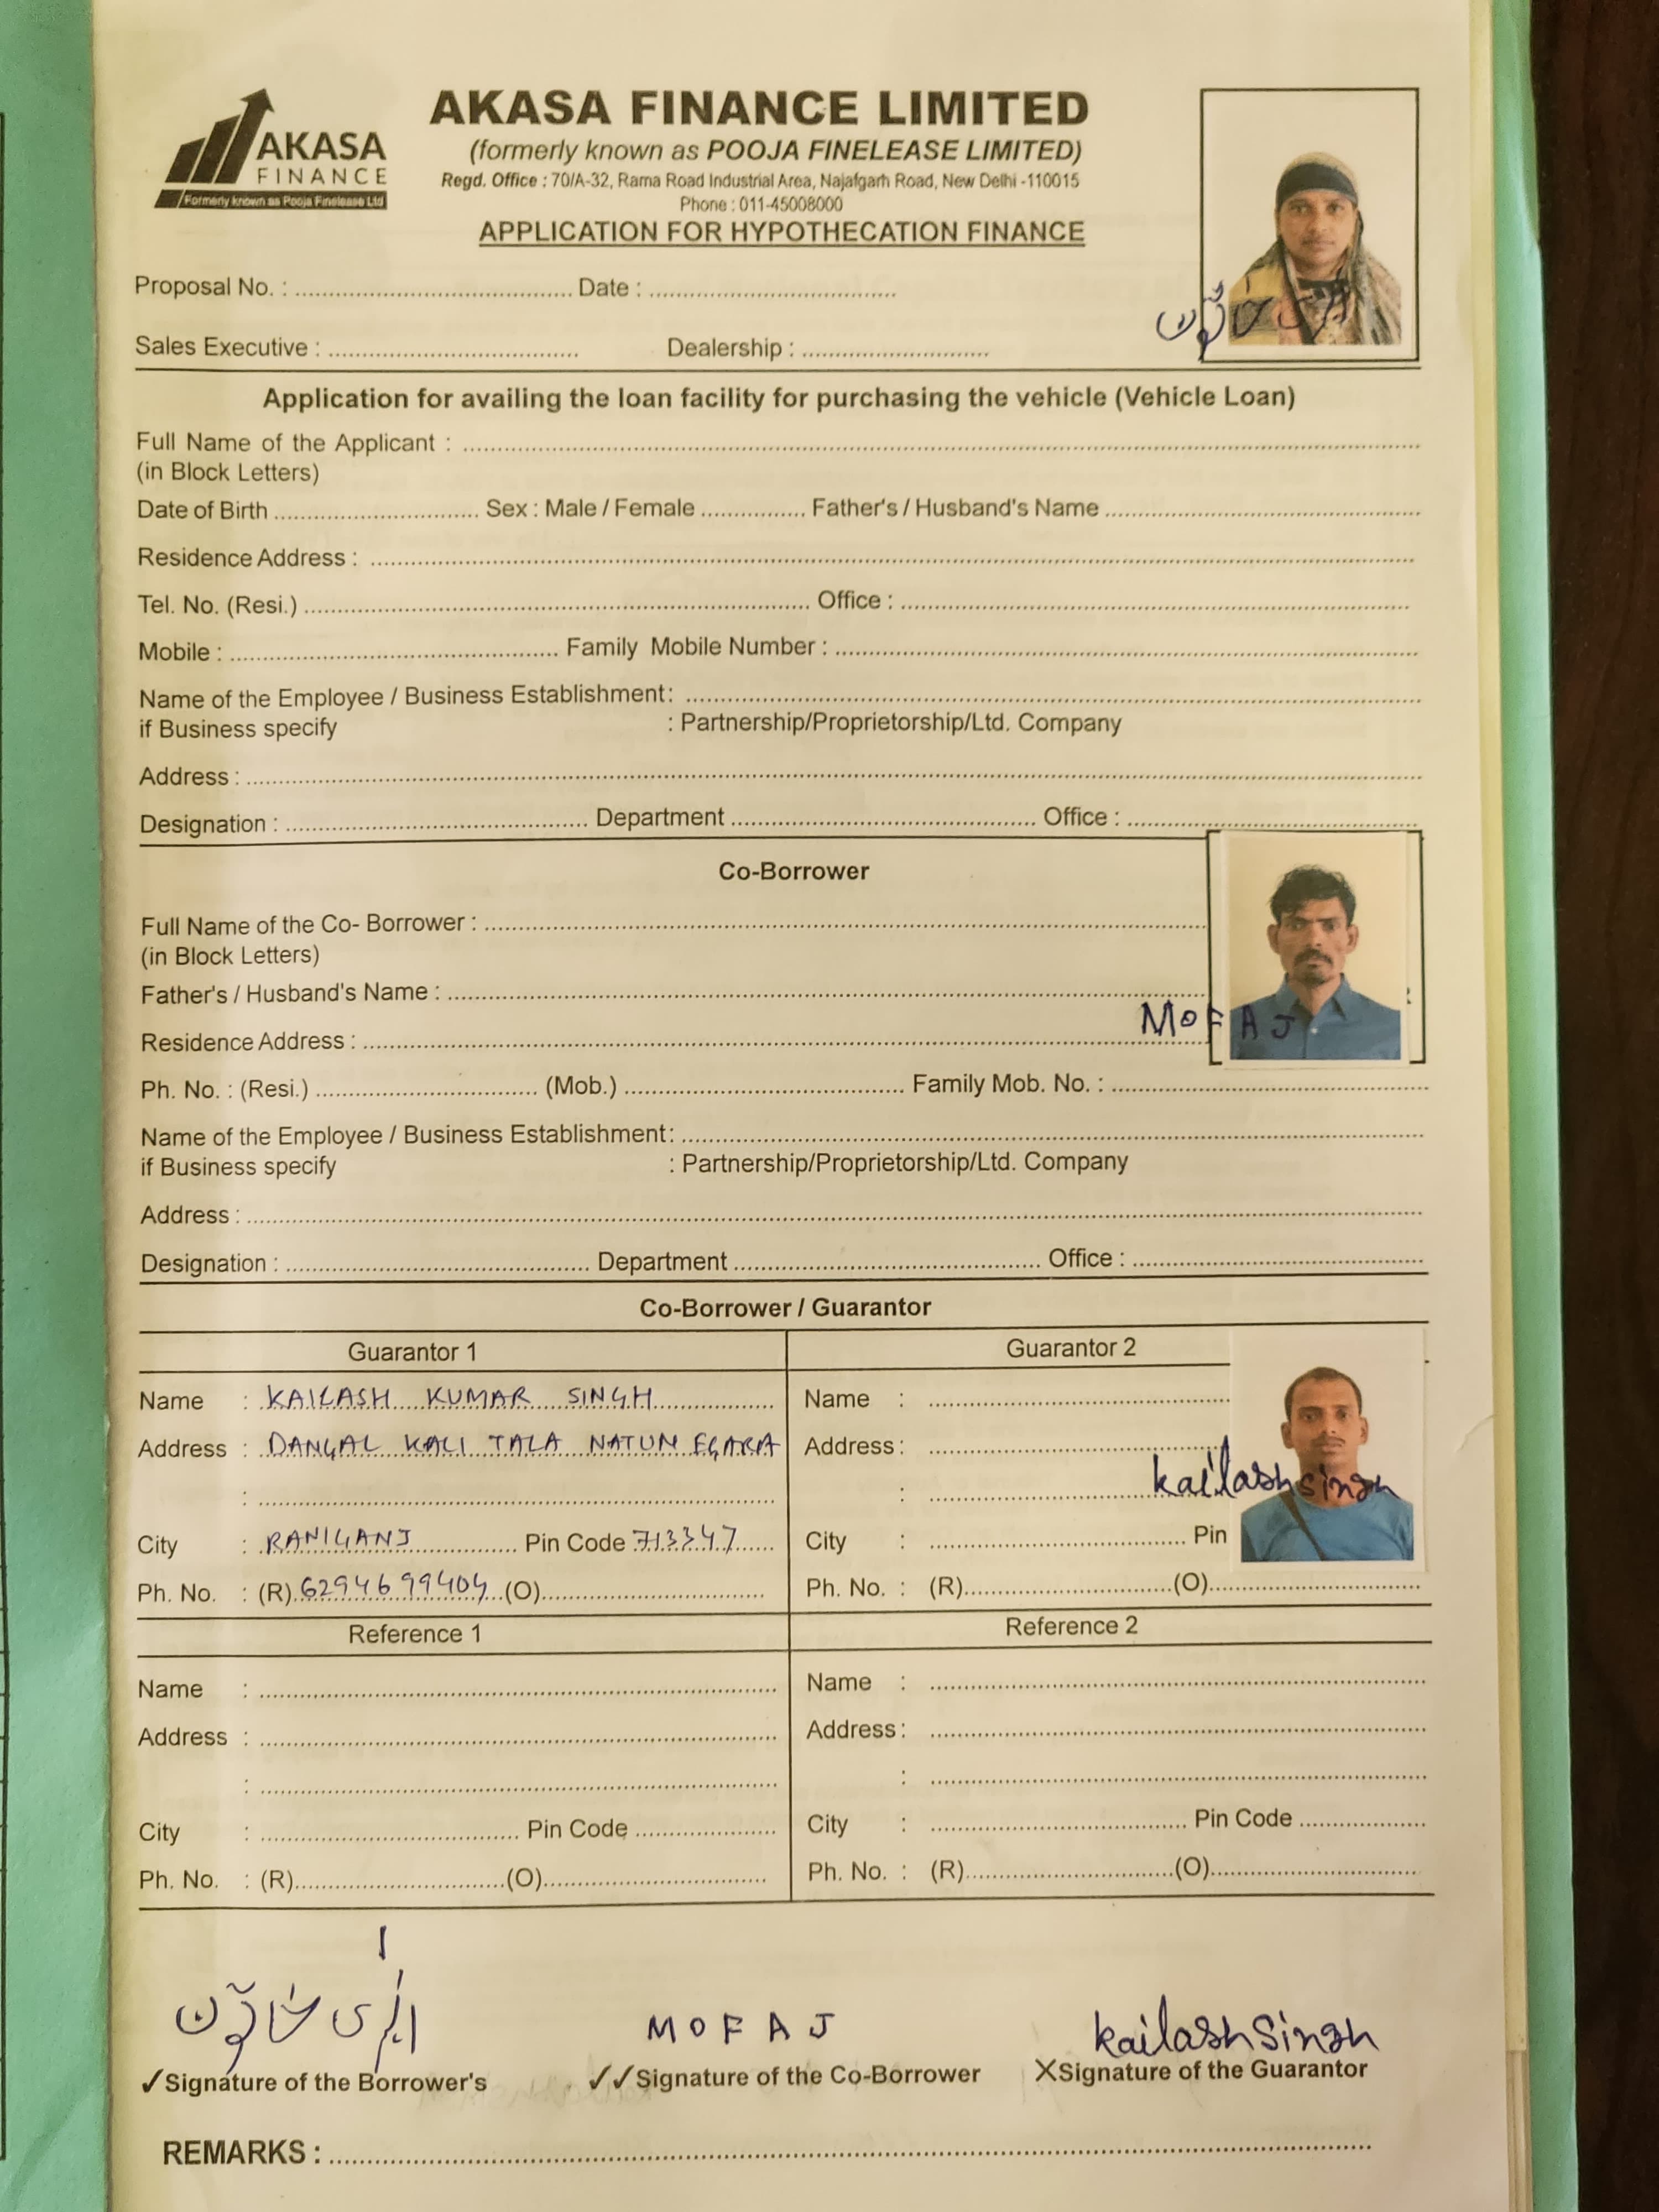 AKASA FINANCE LIMITED
AKASA
FINANCE
Formerly known as Pooja Finelease Ltd
(formerly known as POOJA FINELEASE LIMITED)
Regd. Office : 70/A-32, Rama Road Industrial Area, Najafgarh Road, New Delhi -110015
Phone : 011-45008000
APPLICATION FOR HYPOTHECATION FINANCE
Proposal No. : Date :
Sales Executive : Dealership :
Application for availing the loan facility for purchasing the vehicle (Vehicle Loan)
Full Name of the Applicant :
(in Block Letters)
Date of Birth Sex : Male / Female Father's / Husband's Name
Residence Address :
Tel. No. (Resi.) Office :
Mobile : Family Mobile Number :
Name of the Employee / Business Establishment:
if Business specify : Partnership/Proprietorship/Ltd. Company
Address :
Designation : Department Office :
Co-Borrower
Full Name of the Co- Borrower :
(in Block Letters)
Father's / Husband's Name :
MOFAJ
Residence Address :
Ph. No. : (Resi.) (Mob.) Family Mob. No. :
Name of the Employee / Business Establishment:
if Business specify : Partnership/Proprietorship/Ltd. Company
Address :
Designation : Department Office :
Co-Borrower / Guarantor
Guarantor 1 Guarantor 2
Name : KAILASH KUMAR SINGH Name :
Address : DANGAL KALI TALA NATUN EGARA Address :
: : kailash singh
City : RANIGANJ Pin Code 713347 City : Pin
Ph. No. : (R) 6294699404 (O) Ph. No. : (R) (O)
Reference 1 Reference 2
Name : Name :
Address : Address :
: :
City : Pin Code City : Pin Code
Ph. No. : (R) (O) Ph. No. : (R) (O)
MOFAJ kailash Singh
✓Signature of the Borrower's ✓✓Signature of the Co-Borrower XSignature of the Guarantor
REMARKS :